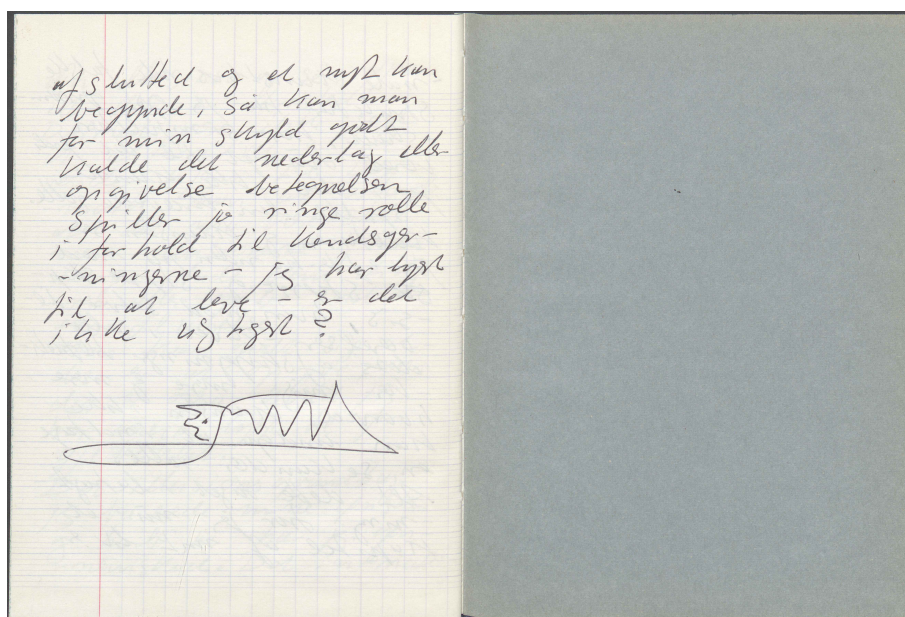 afsluttet og et nyt kan
begynde, så kan man
for min skyld godt
kalde det nederlag eller
opgivelse betegnelsen
spiller jo ringe rolle
i forhold til kendsger-
-ningerne - jeg har lyst
til at leve - er det
ikke vigtigst?